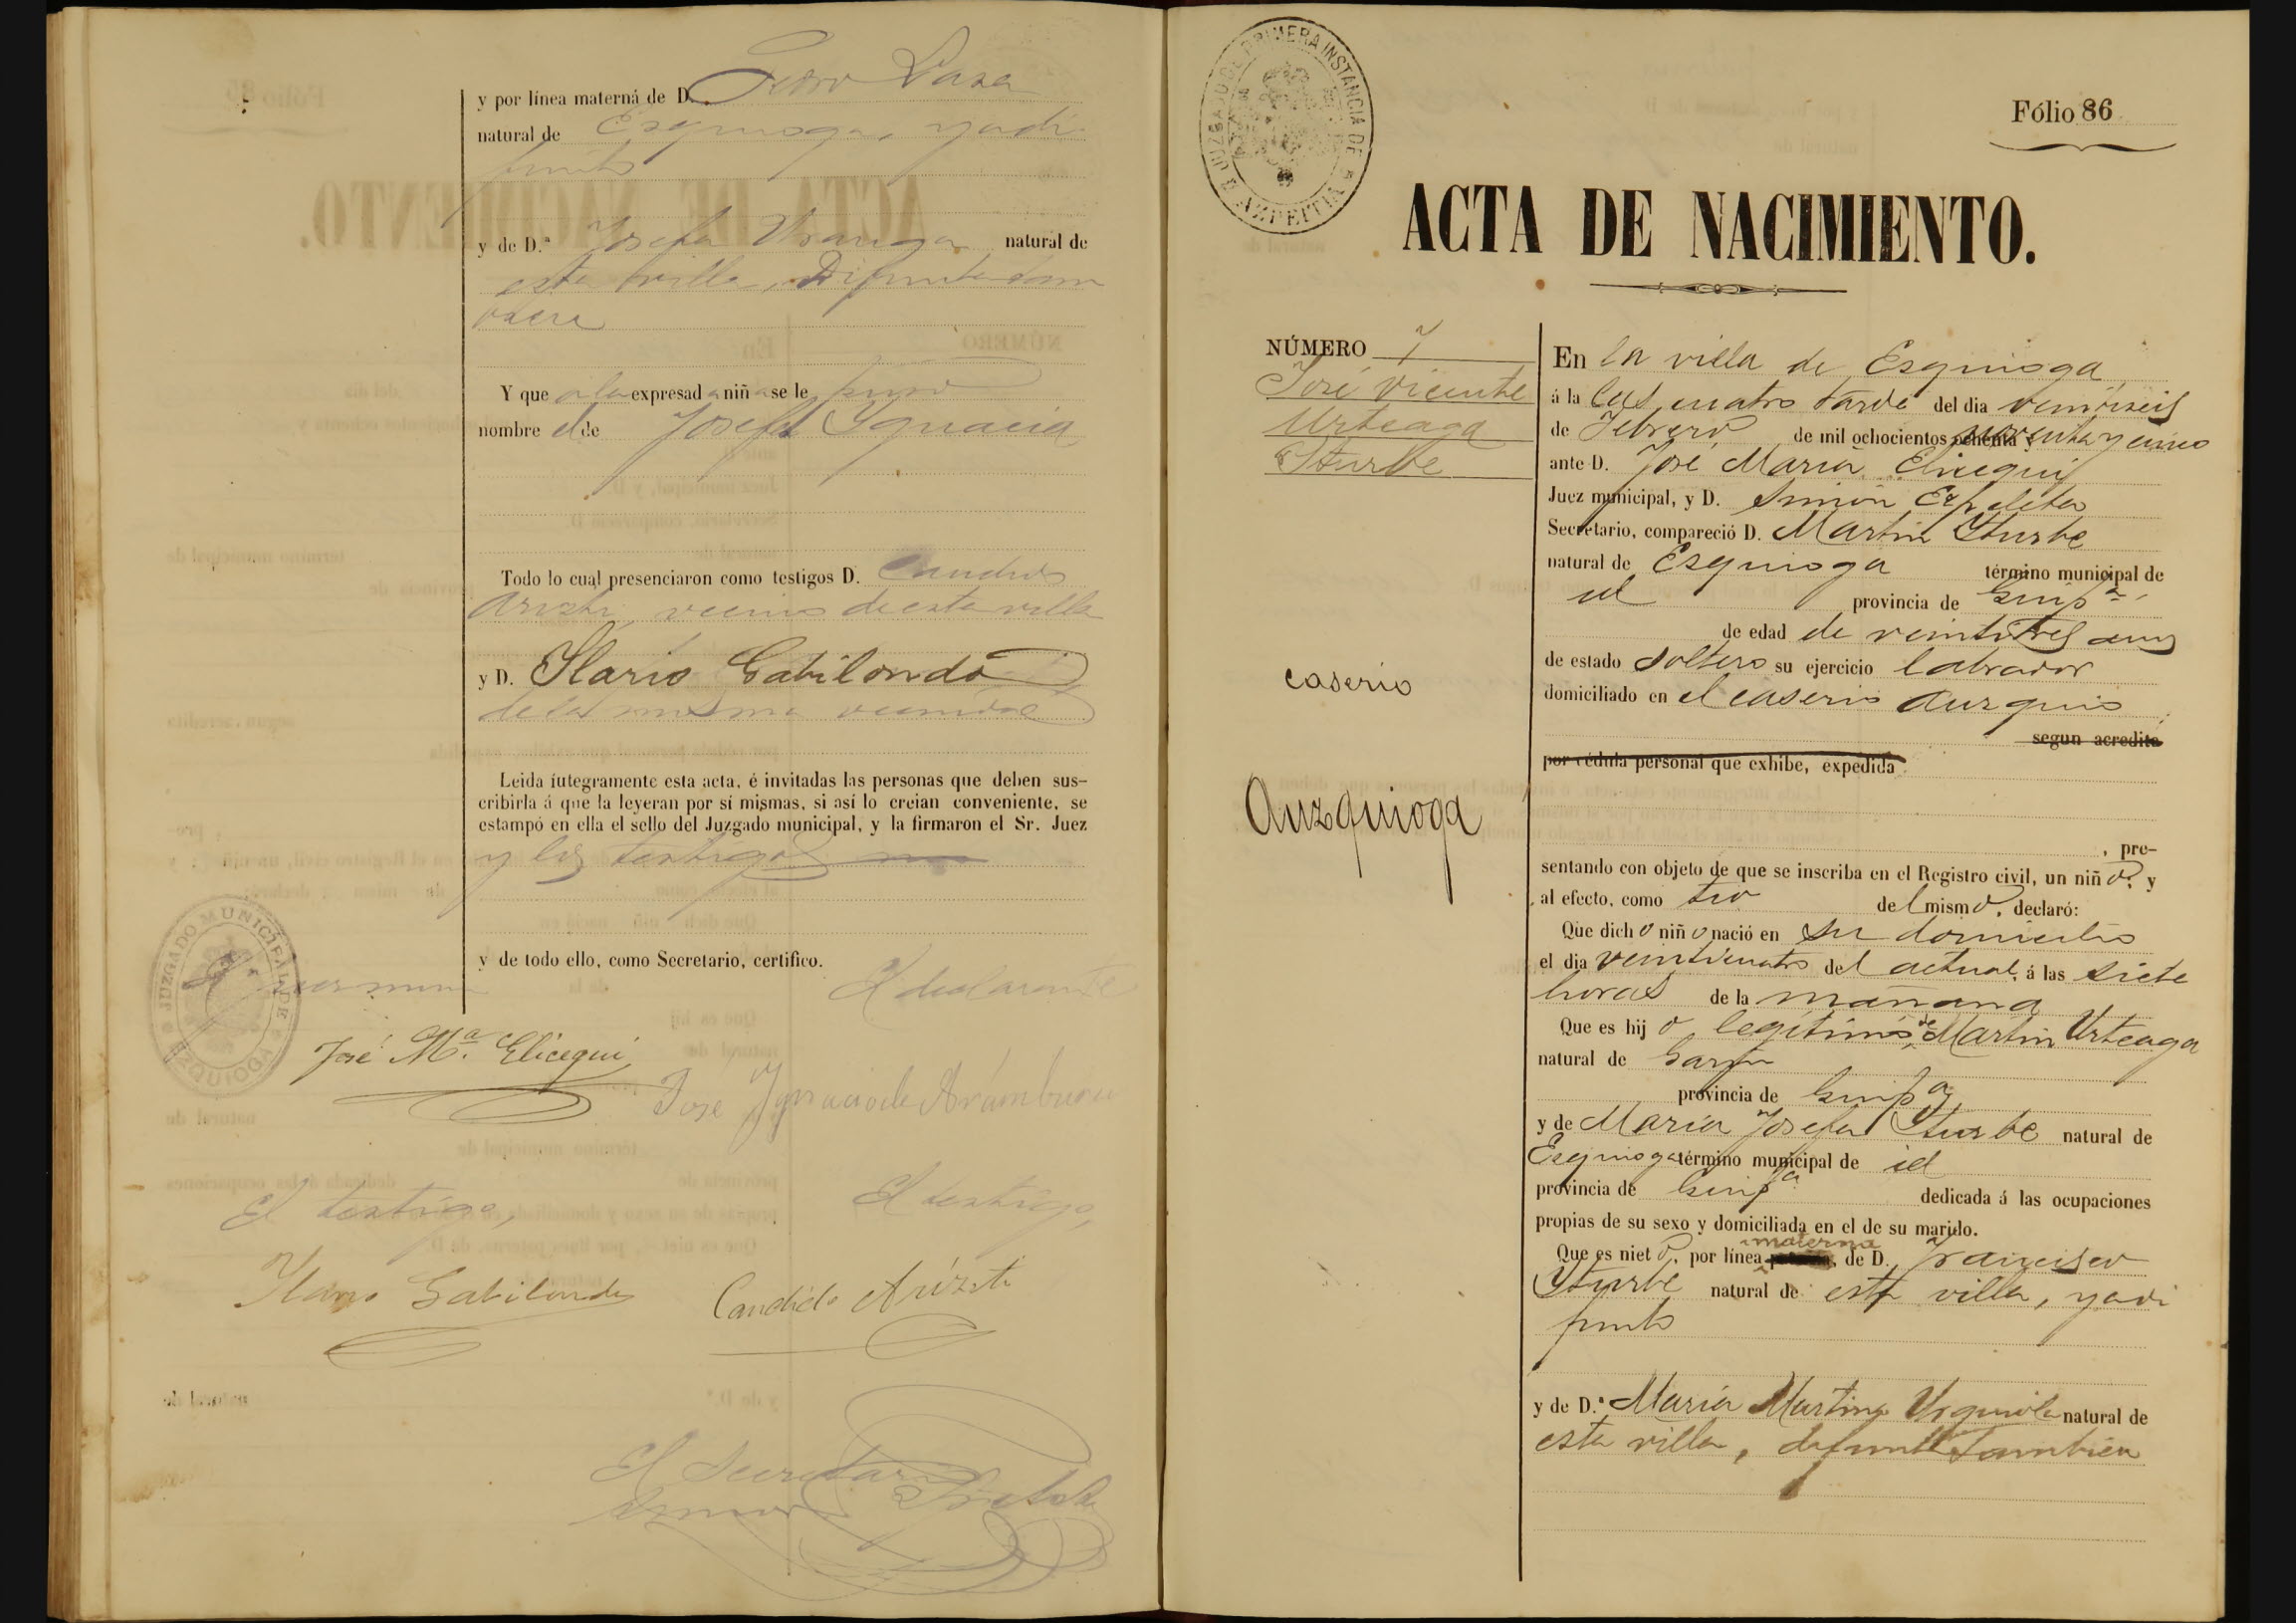 y por línea materná de D. Pedro Lasa
natural de Esquioga, ya di-
funto
y de D.ª Josefa Uranga natural de
esta villa, Difunta tam
Y que a la expresad a niñ a se le puso
nombre el de Josefa Ygnacia
Todo lo cual presenciaron como testigos D. Candido
Arizti, vecino de esta villa
y D. Ylario Gabilondo
de la misma vecindad
Leida íntegramente esta acta, é invitadas las personas que deben sus-
cribirla á que la leyeran por sí mismas, si así lo creian conveniente, se
estampó en ella el sello del Juzgado municipal, y la firmaron el Sr. Juez
y los testigos
y de todo ello, como Secretario, certifico.
JUZGADO MUNICIPAL DE EZQUIOGA
El declarante
José M.ª Elicegui
José Ygnacio de Aramburu
El testigo,
El testigo,
Ylario Gabilondo
Candido Arizti
El Secretario
Simon Ezpeleta
JUZGADO DE PRIMERA INSTANCIA DE AZPEITIA
Fólio 86
ACTA DE NACIMIENTO.
NÚMERO 7
José Vicente
Urteaga
Yturbe
caserio
Auzquioga
En la villa de Esquioga
á la las cuatro tarde del dia veintiseis
de Febrero de mil ochocientos ochenta y noventa y cinco
ante D. José Maria Elicegui
Juez municipal, y D. Simón Ezpeleta
Secretario, compareció D. Martin Yturbe
natural de Esquioga término municipal de
id provincia de Guip.ª
de edad de veintitres años
de estado soltero su ejercicio labrador
domiciliado en el caserio Auzquio
segun acredita
por cédula personal que exhibe, expedida
, pre-
sentando con objeto de que se inscriba en el Registro civil, un niñ o, y
al efecto, como tio de l mism o, declaró:
Que dich o niñ o nació en su domicilio
el dia veinticuatro del actual, á las siete
horas de la mañana
Que es hij o legítimo de Martin Urteaga
natural de
provincia de Guip.ª
y de Maria Josefa Yturbe natural de
Esquioga término municipal de id
provincia de Guip.ª dedicada á las ocupaciones
propias de su sexo y domiciliada en el de su marido.
Que es niet o, por línea materna, de D. Francisco
Yturbe natural de esta villa, ya di
funto
y de D.ª Maria Martina Urquiola natural de
esta villa, difunta tambien